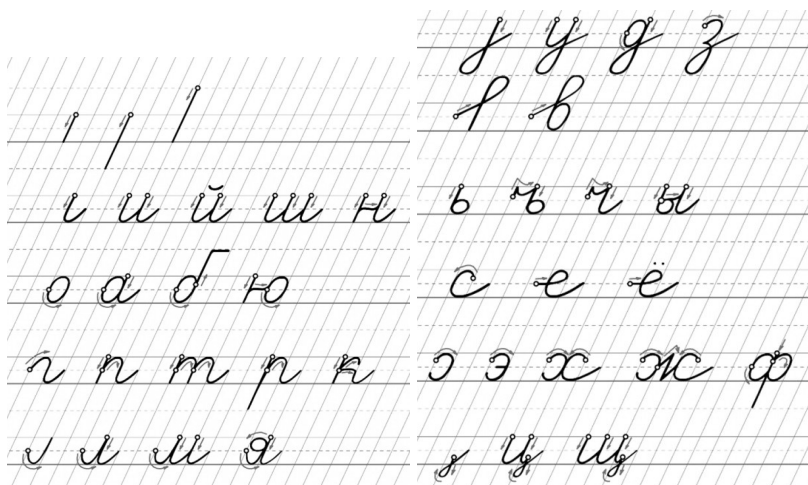 и й ш н
о а б ю
г п т р к
л м я
у д з
в
ь ъ ч ы
с е ё
э х ж ф
ц щ